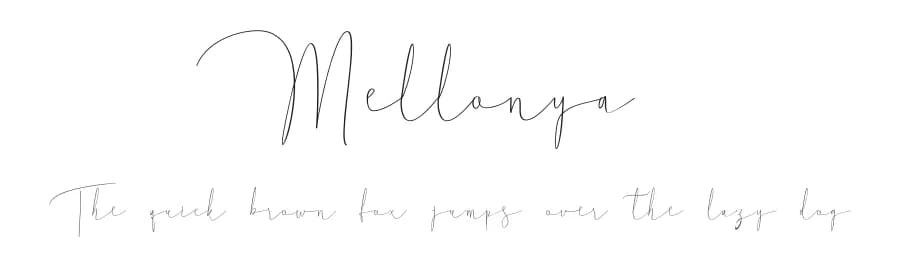 Mellonya
The quick brown fox jumps over the lazy dog